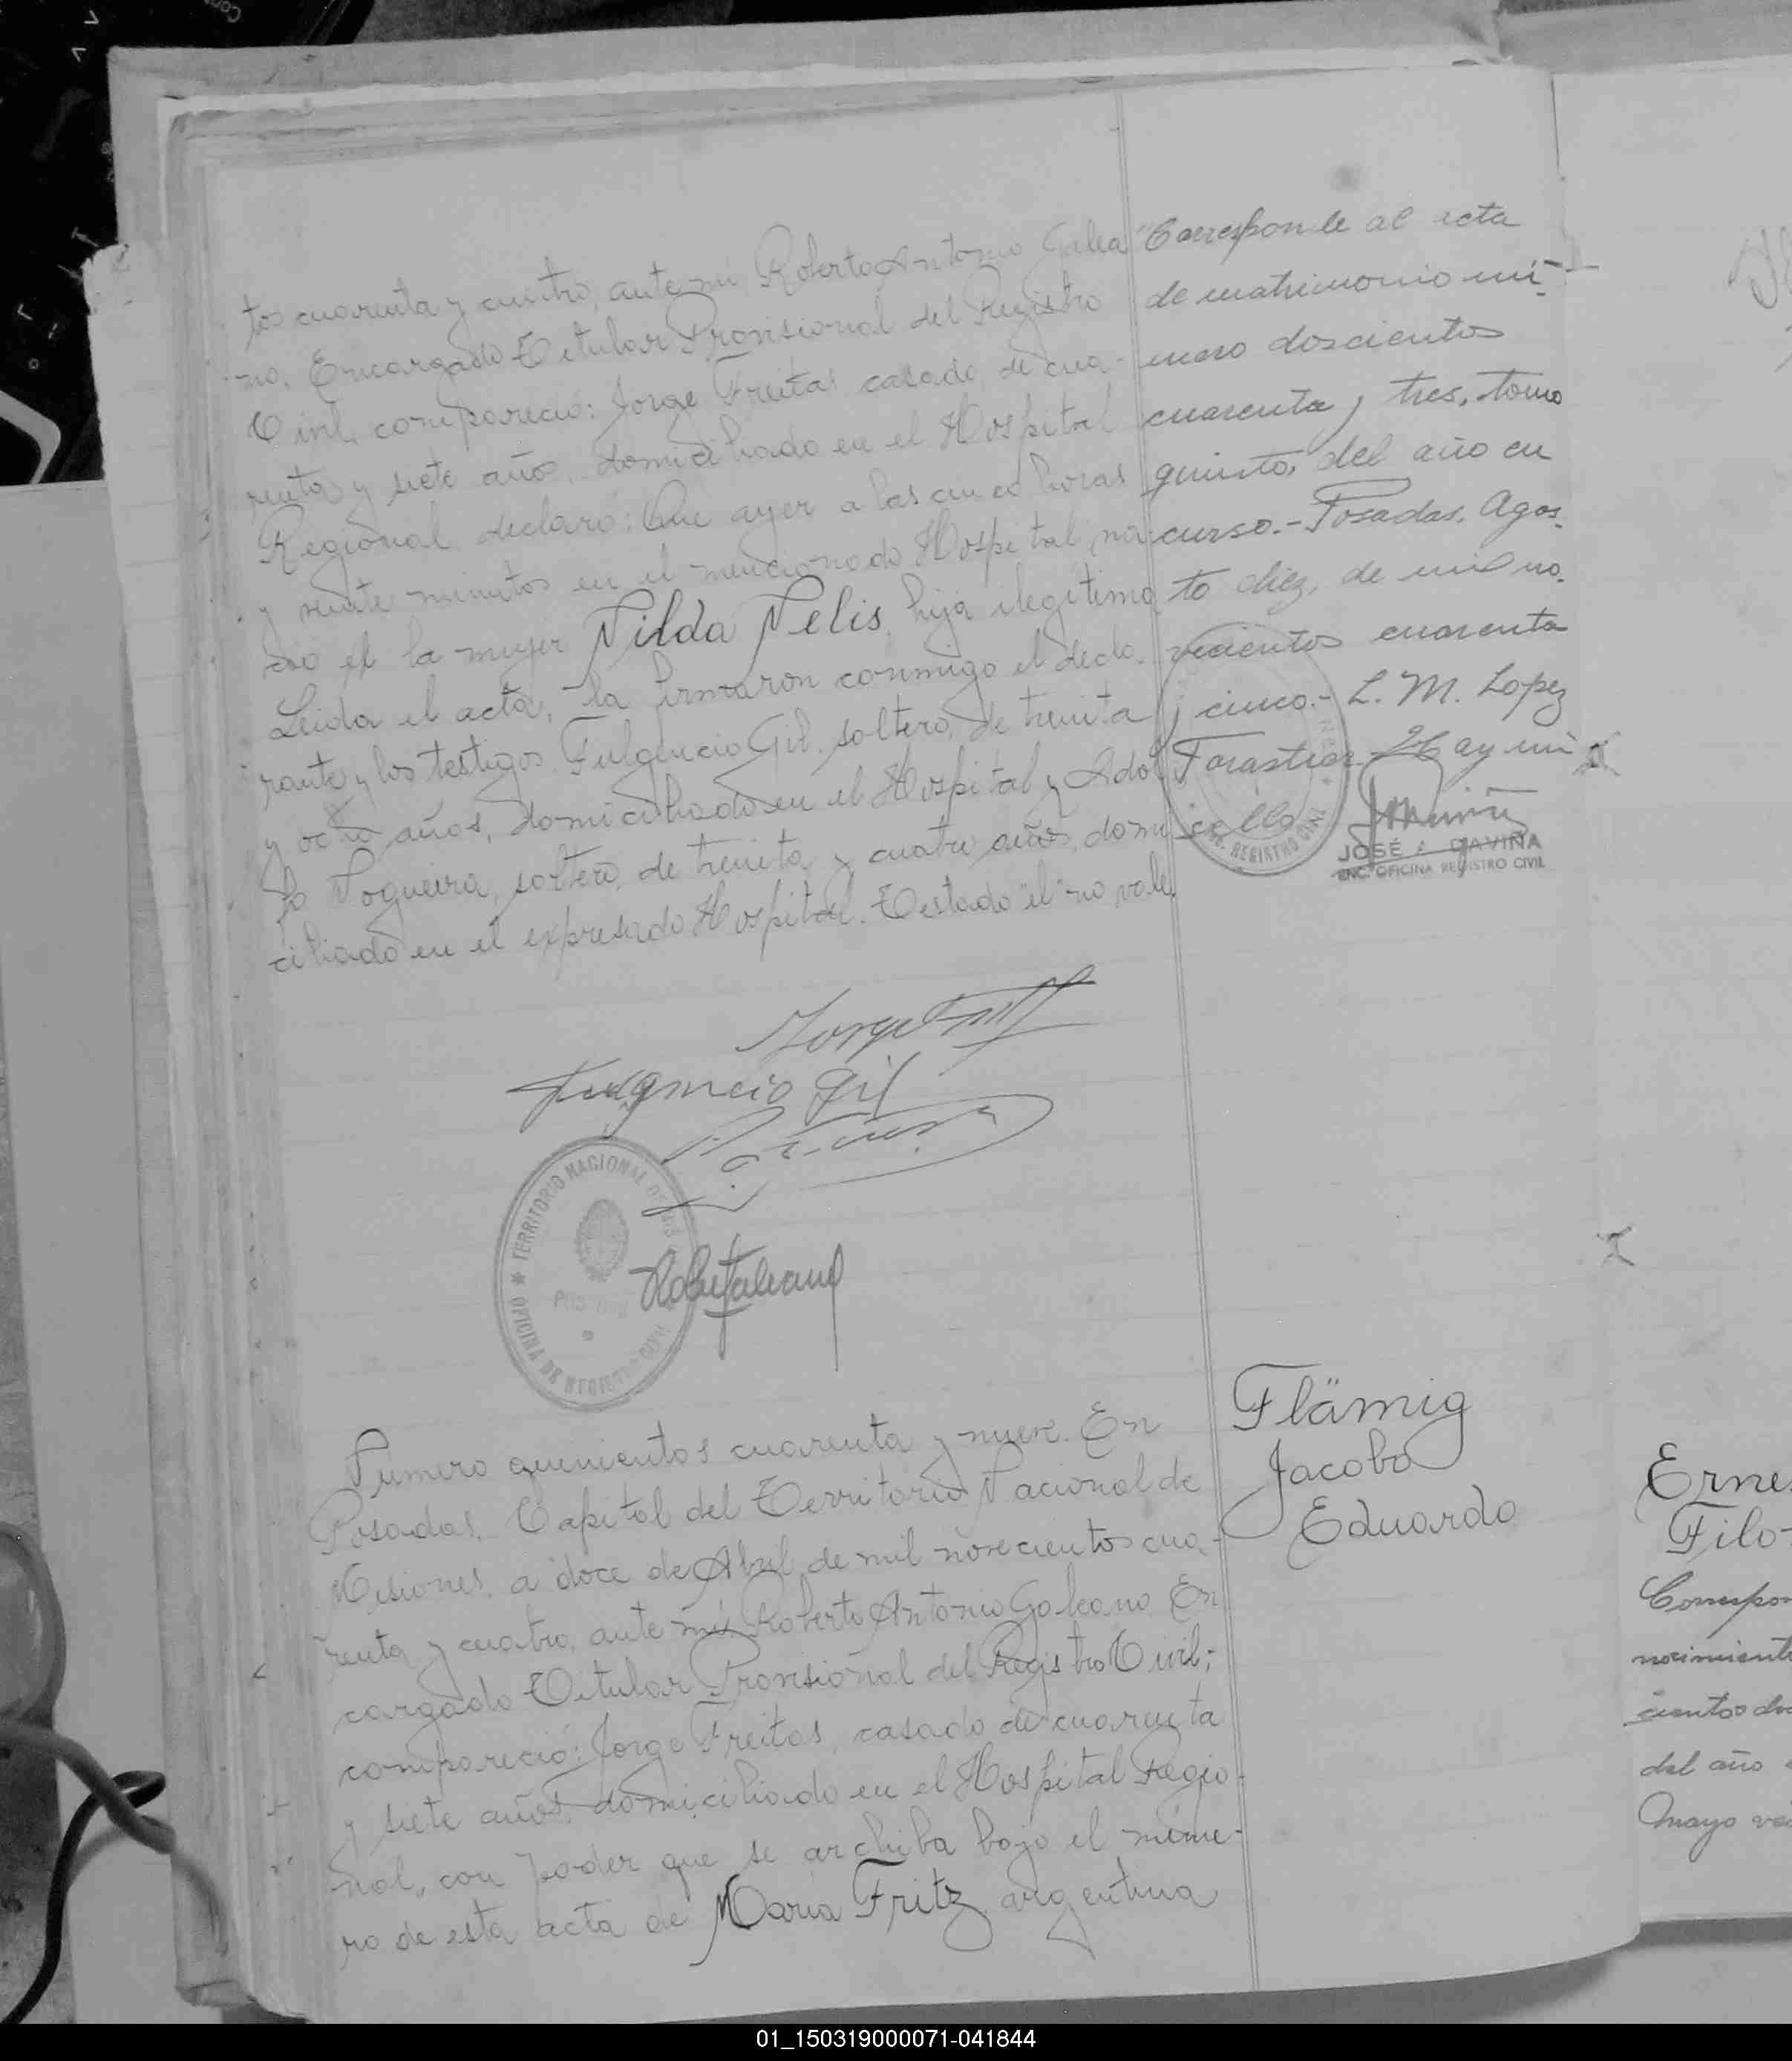 tos cuarenta y cuatro, ante mi, Roberto Antonio Galea
no, Encargado Titular Provisional del Registro
Civil, compareció: Jorge Freitas, casado, de cua-
renta y siete años, domiciliado en el Hospital
Regional, declaró: Que ayer a las cinco horas
y veinte minutos en el mencionado Hospital, na-
ció el la mujer Nilda Nelis, hija ilegítima
Leida el acta, la firmaron conmigo el decla-
rante y los testigos Fulgencio Gil, soltero, de treinta
y ocho años, domiciliado en el Hospital y Adol
fo Nogueira, soltero, de treinta y cuatro años, domi
ciliado en el expresado Hospital. Testado "el" no vale
"Corresponde al acta
de matrimonio nú-
mero doscientos
cuarenta y tres, tomo
quinto, del año en
curso.- Posadas, Agos-
to diez, de mil no-
vecientos cuarenta
y cinco.- L. M. Lopez
Hay un
sello
JOSÉ GAVIÑA
ENC. OFICINA REGISTRO CIVIL
REGISTRO CIVIL
Fulgencio Gil
TERRITORIO NACIONAL DE MISIONES
OFICINA DE REGISTRO CIVIL
POSADAS
Numero quinientos cuarenta y nueve. En
Posadas, Capital del Territorio Nacional de
Misiones, a doce de Abril de mil novecientos cua-
renta y cuatro, ante mi, Roberto Antonio Galeano, En
cargado Titular Provisional del Registro Civil;
compareció: Jorge Freitas, casado de cuarenta
y siete años, domiciliado en el Hospital Regio-
nal, con poder que se archiba bajo el núme-
ro de esta acta de Maria Fritz, argentina
Flämig
Jacobo
Eduardo
Erne
Filo
Correspon
nacimiento
cientos do
del año
Mayo ve
01_150319000071-041844